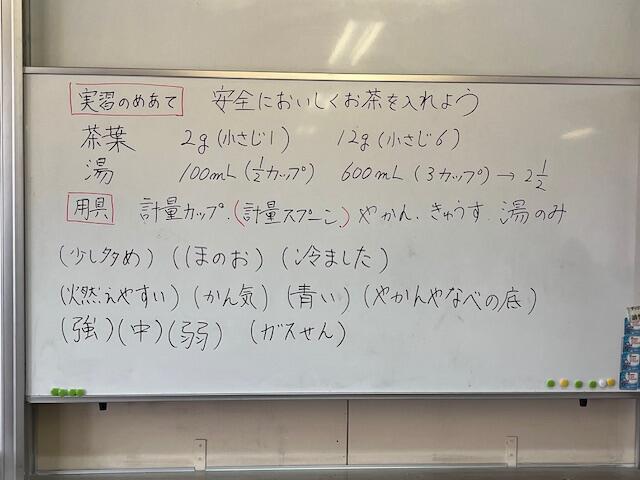 実習のめあて 安全においしくお茶を入れよう
茶葉 2g(小さじ1) 12g(小さじ6)
湯 100mL(1/2カップ) 600mL(3カップ)→2 1/2
用具 計量カップ.(計量スプーン.)やかん.きゅうす.湯のみ
(少し多め)((ほのお)(冷ました)
(燃えやすい)(かん気)(青い)(やかんやなべの底)
(強)(中)(弱)(ガスせん)